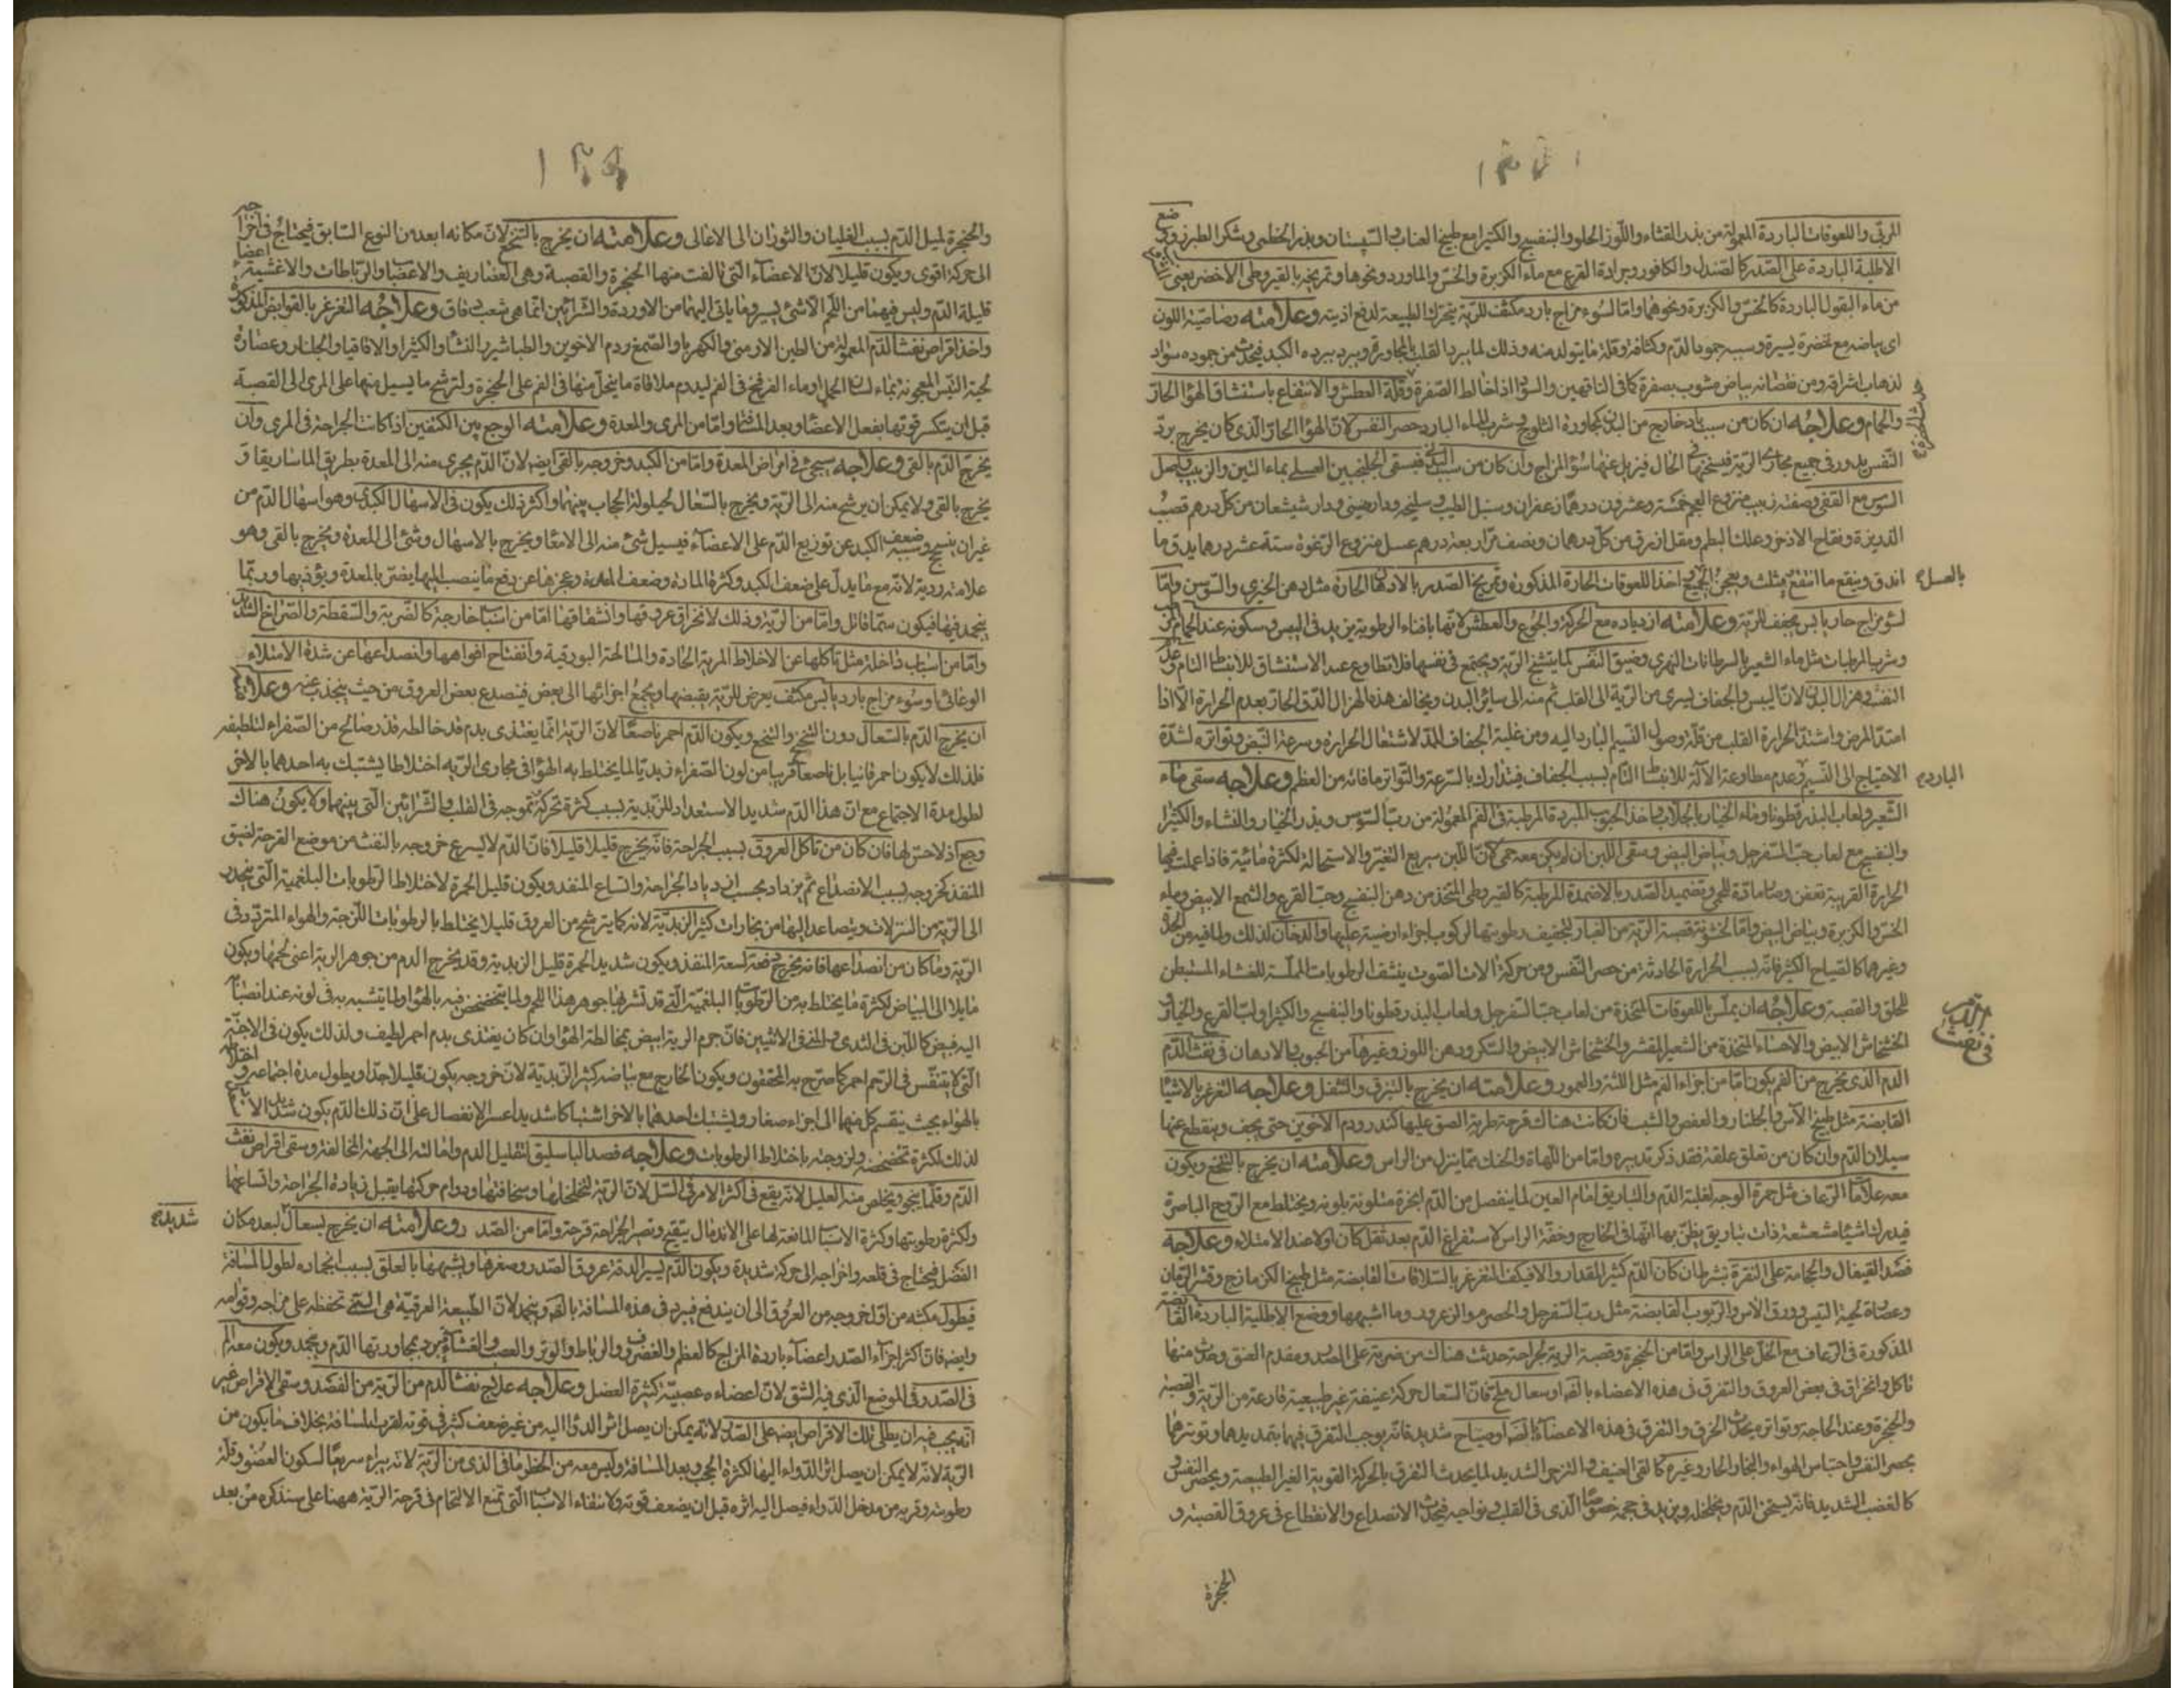 المربى واللعوقات الباردة المعمولة من بذر القثاء واللوز الحلو والبنفسج والكثيرا مع طبيخ العناب والسپستان وبذر الخطمى وسكر الطبرزد
الاطلية الباردة على الصدر كالصندل والكافور وجرادة القرع مع ماء الكزبرة والخس والماورد ونحوها وتمريخه بالقيروطى الاخضر يعنى
من ماء البقول الباردة كالخس والكزبرة ونحوهما واما لسوء مزاج بارد مكثف للرية يتحرك الطبيعة لدفع اذيته وعلامته رصاصية اللون
اى بياضه مع خضرة يسيرة وسببه جمود الدم وكثافته وقلة ما يتولد منه وذلك لما يبرد القلب بالمجاورة ويبرد ببرده الكبد فيحدث من جموده سواد
لذهاب اشراقه ومن نقصانه بياض مشوب بصفرة كما فى الناقهين والسواد اذا خالط الصفرة وقلة العطش والانتفاع باستنشاق الهواء الحار
والحمام وعلاجه ان كان من سبب باد خارج من البدن كمجاورة الثلوج وشرب الماء البارد حصر النفس لان الهواء الحار الذى كان يخرج برد
النفس يدور فى جميع مجارى الرية فيسخنها فى الحال فيزيل عنها سوء المزاج وان كان من سبب فيسقى الجلنجبين العسلى بماء التين والزبيب واصل
السوس مع القفى وصفته زبيب منزوع العجم خمسة وعشرون درهما زعفران وسنبل الطيب وسليخه ودارصينى ودارشيشعان من كل درهم قصب
الذريرة وفقاح الاذخر وعلك البطم ومقل ازرق من كل درهمان ونصف مر اربعة دراهم عسل منزوع الرغوة ستة عشر درهما يدق ما
اندق وينقع ما انتقع بمثلث ويعجن الجميع اخذ اللعوقات الحارة المذكورة وتمريخ الصدر بالادهان الحارة مثل دهن الخيرى والسوسن واما
بالعسل
لسوء مزاج حار يابس مجفف للرية وعلامته ازدياده مع الحركة والجوع والعطش لانها بافناء الرطوبة يزيد فى اليبس وسكونه عند الحمام
وشرب المرطبات مثل ماء الشعير بالسرطانات النهرى وضيق النفس لما يتشنج الرية ويجتمع فى نفسها فلا تطاوع عند الاستنشاق للانبساط التام
النفث وهزال البدن لان اليبس والجفاف يسرى من الرية الى القلب ثم منه الى سائر البدن ويخالف هذه الهزال الدق الحار بعدم الحرارة الا اذا
امتد المرض واشتد الحرارة القلب من قلة وصول النسيم البارد اليه ومن غلبة الجفاف المذل لاشتعال الحرارة وسرعة النبض وتواتره لشدة
الاحتياج الى النسيم وعدم مطاوعة الآلة للانبساط التام بسبب الجفاف فيتدارك بالسرعة والتواتر ما فاته من العظم وعلاجه سقى ماء
البارد
الشعير ولعاب البذرقطونا وماء الخيار بالجلاب واخذ الحبوب المبردة المرطبة فى الفم المعمولة من رب السوس وبذر الخيار والنشاء والكثيرا
والبنفسج مع لعاب حب السفرجل وبياض البيض وسقى اللبن ان لم يكن معه حمى لان اللبن سريع التغير والاستحالة لكثرة مائيته فاذا عملت فيها
الحرارة الغريبة تعفن وصار مادة للحمى وتضميد الصدر بالاضمدة المرطبة كالقيروطى المتخذ من دهن البنفسج وحب القرع والشمع الابيض وماء
الخس والكزبرة وبياض البيض واما لخشونة قصبة الرية من الغبار لتجفيف رطوبتها لركوب اجزاء ارضية عليها والدخان لذلك ولما فيه من
وغيرهما كالصياح الكثير فانه بسبب الحرارة الحادثة من حصر النفس ومن حركة الات الصوت ينشف الرطوبات المملسة للغشاء المستبطن
للحلق والقصبة وعلاجه ان يملس باللعوقات المتخذة من لعاب حب السفرجل ولعاب البذرقطونا والبنفسج والكثيرا ولب القرع والخيار
الخشخاش الابيض والاحساء المتخذة من الشعير المقشر والخشخاش الابيض والسكر ودهن اللوز وغيرها من الحبوب والادهان فى نفث الدم
فى نفث الدم
الدم الذى يخرج من الفم يكون اما من اجزاء الفم مثل اللثة والعمور وعلامته ان يخرج بالتبزق والتثفل وعلاجه التغرغر بالاشياء
القابضة مثل طبيخ الآس والجلنار والعفص والشب فان كانت هناك قرحة طرية الصق عليها كندر ودم الاخوين حتى يجف وينقطع عنها
سيلان الدم وان كان من تعلق علقة فقد ذكر تدبيره واما من اللهاة والحنك مما ينزل من الراس وعلامته ان يخرج بالتنخع ويكون
معه علامات الرعاف مثل حمرة الوجه لغلبة الدم والتباريق امام العين لما ينفصل من الدم ابخرة متلونة بلونه ويختلط مع الروح الباصرة
فيدرك اشياء مشعشعة ذات تباريق يظن بها انها فى الخارج وخفة الراس لاستفراغ الدم بعد ثقل كان اولا عند الامتلاء وعلاجه
فصد القيفال والحجامة على النقرة بشرط ان كان الدم كثير المقدار والا فيكفى التغرغر بالسلاقات القابضة مثل طبيخ الكزمازج وقشر الرمان
وعصارة لحية التيس وورق الآس والربوب القابضة مثل رب السفرجل والحصرم والزعرور وما اشبهها ووضع الاطلية الباردة القابضة
المذكورة فى الرعاف مع الخل على الراس واما من الحنجرة وقصبة الرية لجراحة حدثت هناك من ضربة على الصدر ومقدم العنق وحدث منها
تاكل وانخراق فى بعض العروق والتفرق فى هذه الاعضاء بالقه او سعال ملح فان السعال حركة عنيفة غير طبيعية قارعة من الرية والقصبة
والحنجرة وعند الحاجة وتواتره يحدث الخرق والتفرق فى هذه الاعضاء او صياح شديد فانه يوجب التفرق فيها بتمديدها وتوتيرها
بحصر النفس واحتباس الهواء والبخار الحار وغيره كالقى العنيف والتزحر الشديد لما يحدث التفرق بالحركة القوية الغير الطبيعية وبحصر النفس
كالغضب الشديد فانه يسخن الدم ويخلخله ويزيد فى حجمه خصوصا الذى فى القلب ونواحيه فيحدث الانصداع والانقطاع فى عروق القصبة و
الحنجرة
والحنجرة لميل الدم بسبب الغليان والثوران الى الاعالى وعلامته ان يخرج بالتنحنح لان مكانه ابعد من النوع السابق فيحتاج فى اخراجه
الى حركة اقوى ويكون قليلا لان الاعضاء التى تالفت منها الحنجرة والقصبة وهى الغضاريف والاعصاب والرباطات والاغشية اعضاء
قليلة الدم وليس فيهما من اللحم الا شئ يسير وما ياتى اليهما من الاوردة والشرائين انما هى شعب دقاق وعلاجه التغرغر بالقوابض المذكورة
واخذ اقراص نفث الدم المعمولة من الطين الارمنى والكهربا والصمغ ودم الاخوين والطباشير والنشا والكثيرا والاقاقيا والجلنار وعصارة
لحية التيس المعجونة بماء لسان الحمل او ماء الفرفخ فى الفم ليدوم ملاقاة ما ينحل منها فى الفم على الحنجرة ولترشح ما يسيل منها على المرى الى القصبة
قبل ان يتكسر قوتها بفعل الاعضاء وبعد المسافة واما من المرى والمعدة وعلامته الوجع بين الكتفين اذا كانت الجراحة فى المرى وان
يخرج الدم بالقى وعلاجه سيجئ فى امراض المعدة واما من الكبد وخروجه بالقى ايضه لان الدم يجرى منه الى المعدة بطريق الماساريقا و
يخرج بالقى ولا يمكن ان يرشح منه الى الرية ويخرج بالسعال لحيلولة الحجاب بينهما واكثر ذلك يكون فى الاسهال الكبدى وهو اسهال الدم من
غير ان ينسحج وسببه ضعف الكبد عن توزيع الدم على الاعضاء فيسيل شئ منه الى الامعاء ويخرج بالاسهال وشئ الى المعدة ويخرج بالقى وهو
علامة ردية لانه مع ما يدل على ضعف الكبد وكثرة المادة وضعف المعدة وعجزها عن دفع ما ينصب اليها يضر بالمعدة ويؤذيها وربما
ينجمد فيها فيكون سما قاتلا واما من الرية وذلك لانخراق عروقها وانشقاقها اما من اسباب خارجة كالضربة والسقطة والصراخ الشديد
واما من اسباب داخلة مثل تاكلها عن الاخلاط المرية الحادة والمالحة البورقية وانفتاح افواهها وانصداعها عن شدة الامتلاء
الوعائى او سوء مزاج بارد يابس مكثف يعرض للرية بقبضها ويجمع اجزائها الى بعض فينصدع بعض العروق من حيث ينجذب عنه وعلامته
ان يخرج الدم بالسعال دون التنحنح والتنخع ويكون الدم احمر ناصعا لان الرية انما يغتذى بدم قد خالطه قدر صالح من الصفراء لتلطيفه
فلذلك لا يكون احمر قانيا بل ناصعا قريبا من لون الصفراء زبديا لما يختلط به الهواء فى مجارى الرية اختلاطا يشتبك به احدهما بالاخر
لطول مدة الاجتماع مع ان هذا الدم شديد الاستعداد للزبدية بسبب كثرة تحركه وتموجه فى القلب والشرائين التى بينهما ولا يكون هناك
وجع اذ لا حس لها فان كان من تاكل العروق بسبب الجراحة فانه يخرج قليلا قليلا فان الدم لا يسرع خروجه بالنفث من موضع القرحة لضيق
المنفذ كخروجه بسبب الانصداع ثم يزداد بحسب ازدياد الجراحة واتساع المنفذ ويكون قليل الحمرة لاختلاط الرطوبات البلغمية التى ينحدر
الى الرية من النزلات ويتصاعد اليها من بخارات كثير الزبدية لانه كما يترشح من العروق قليلا يختلط بالرطوبات اللزجة والهواء المتردد فى
الرية وما كان من انصداعها فانه يخرج دفعة لسعة المنفذ ويكون شديد الحمرة قليل الزبدية وقد يخرج الدم من جوهر الرية اعنى لحمها ويكون
مايلا الى البياض لكثرة ما يختلط به من الرطوبات البلغمية التى قد تشربها جوهر هذا اللحم ولما يتخضخض فيه بالهواء ولما يتشبه به فى لونه عند انصبابه
اليه فيبيض كاللبن فى الثدى والمنى فى الانثيين فان جرم الرية ابيض بمخالطة الهواء وان كان يغتذى بدم احمر لطيف ولذلك يكون فى الاجنة
التى لا يتنفس فى الرحم احمر كما صرح به المحققون ويكون الخارج مع بياضه كثير الزبدية لان خروجه يكون قليلا جدا ويطول مدة اجتماعه واختلاطه
بالهواء بحيث ينقسم كل منهما الى اجزاء صغار ويشتبك احدهما بالاخر اشتباكا شديدا عسر الانفصال على ان ذلك الدم يكون
لذلك لكثرة تخضخضه ولزوجته باختلاط الرطوبات وعلاجه فصد الباسليق لتقليل الدم وامالته الى الجهة المخالفة وسقى اقراص نفث
الدم وقلما ينجو ويخلص منه العليل لانه يقع فى اكثر الامر فى السل لان الرية لتخلخلها وسخافتها ودوام حركتها يقبل زيادة الجراحة واتساعها
ولكثرة رطوبتها وكثرة الاسباب المانعة لها على الاندمال يتقيح وتصير الجراحة قرحة واما من الصدر وعلامته ان يخرج بسعال لبعد مكان
شديد
الفضل فيحتاج فى قلعه واخراجه الى حركة شديدة ويكون الدم يسيرا لدقة عروق الصدر وصغرها ويشبهها بالعلق بسبب انجماده لطول المسافة
فيطول مكثه من اول خروجه من العروق الى ان يندفع فيبرد فى هذه المسافة بالقه وينجمد لان الطبيعة العرقية هى التى تحفظه على مزاجه وقوامه
وايضه فان اكثر اجزاء الصدر اعضاء باردة المزاج كالعظم والغضروف والرباط والوتر والعصب والغشاء فيبرد بمجاورتها الدم وينجمد ويكون معه الم
فى الصدر وفى الموضع الذى فيه الشق لان اعضاءه عصبية كثيرة العضل وعلاجه علاج نفث الدم من الرية من الفصد وسقى الاقراص غير
انه يجب فيه ان يطلى تلك الاقراص ايضه على الصدر لانه يمكن ان يصل اثر الدواء اليه من غير ضعف كثير فى قوته لقرب المسافة بخلاف ما يكون من
الرية لانه لا يمكن ان يصل اثر الدواء اليها لكثرة الحجب وبعد المسافة وليس معه من الخطر ما فى الذى من الرية لانه يبراء سريعا لسكون العضو وقلة
رطوبته وقربه من مدخل الدواء فيصل اليه اثره قبل ان يضعف قوته ولانتفاء الاسباب التى تمنع الالتحام فى قرحة الرية ههنا على ما سنذكره من بعد